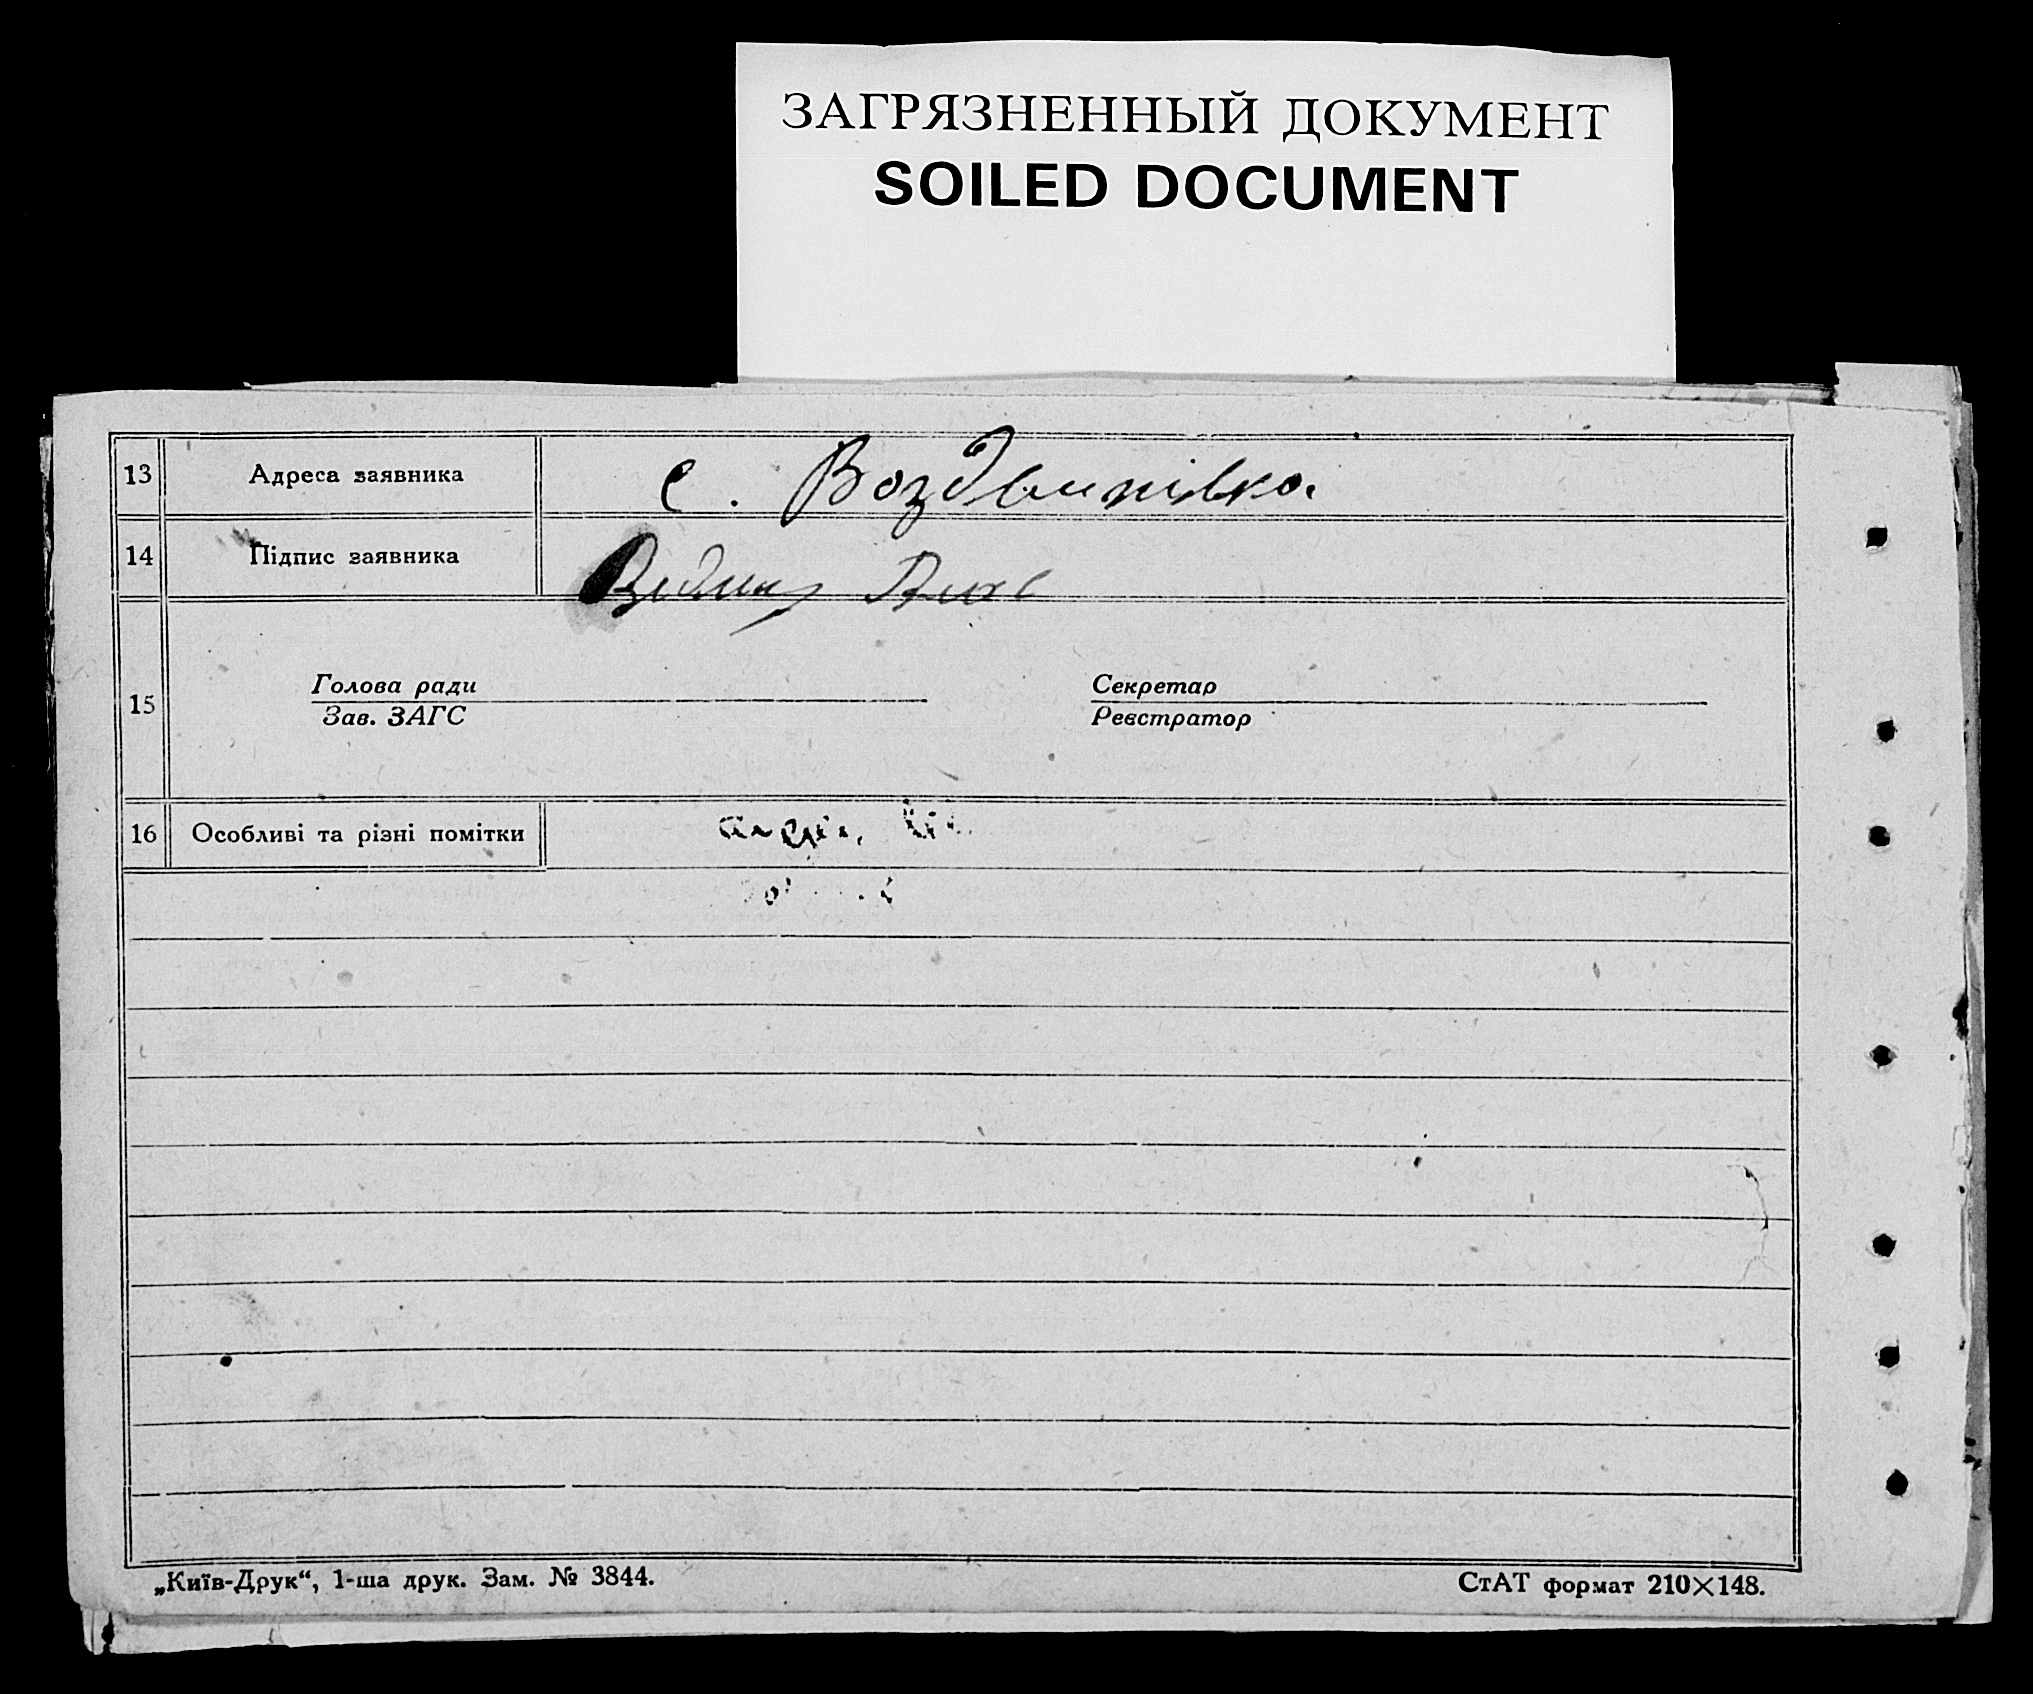 ЗАГРЯЗНЕННЫЙ ДОКУМЕНТ
SOILED DOCUMENT
13 Адреса заявника с. Воздвижівка.
14 Підпис заявника
15 Голова ради Секретар
Зав. ЗАГС Реєстратор
16 Особливі та різні помітки
„Київ-Друк“, 1-ша друк. Зам. № 3844. СтАТ формат 210×148.